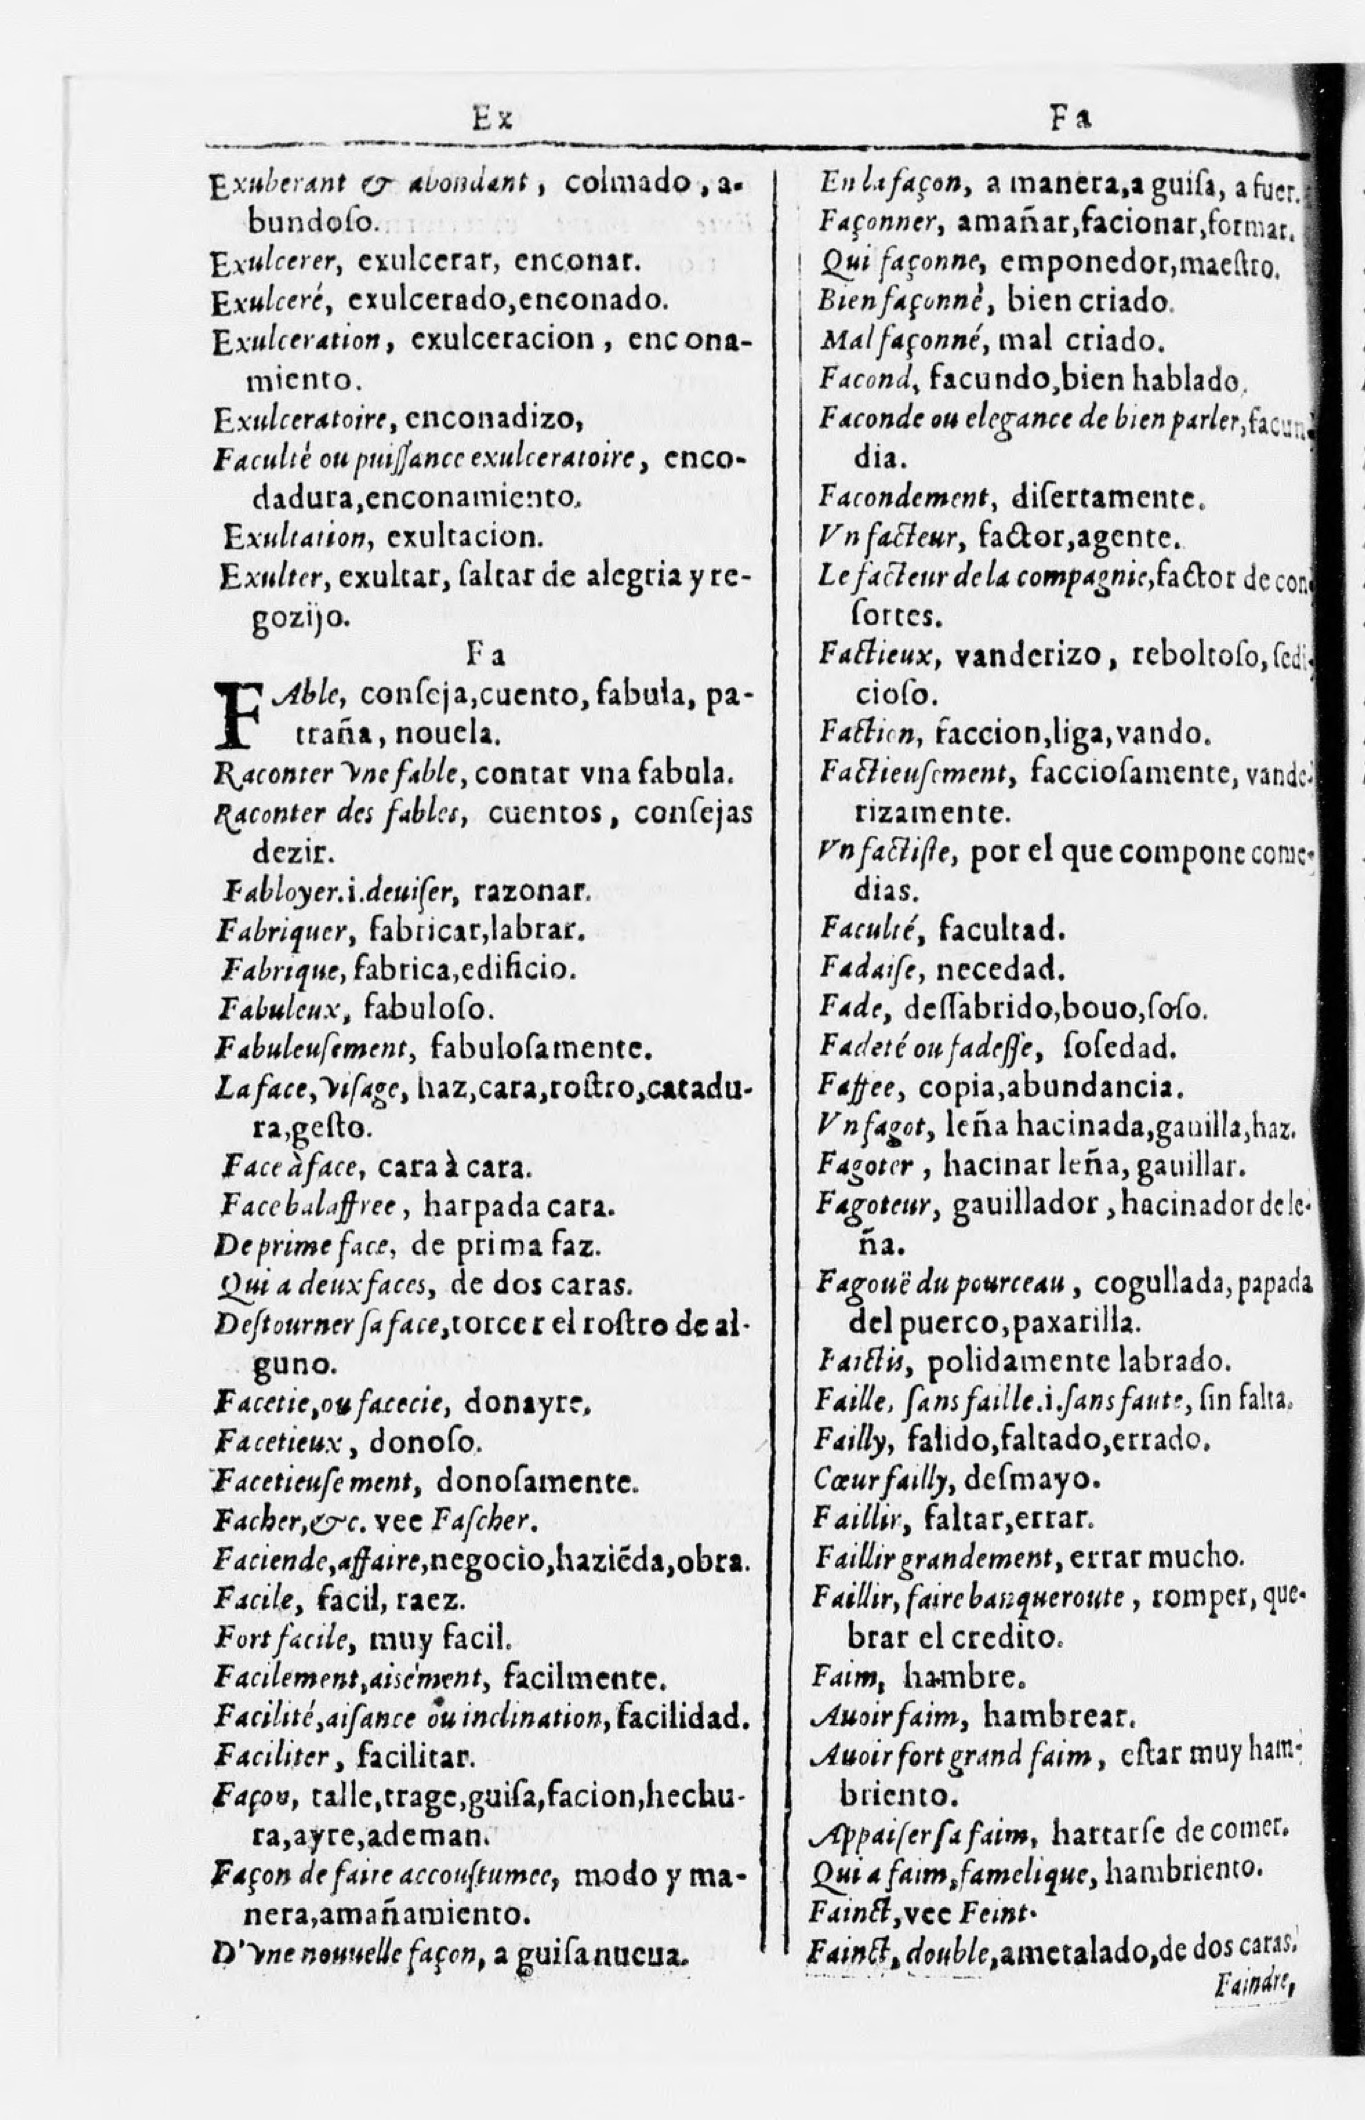 Ex
Exuberant & abondant, colmado, a-
bundoſo.
Exulcerer, exulcerar, enconar.
Exulceré, exulcerado,enconado.
Exulceration, exulceracion, encona-
miento.
Exulceratoire, enconadizo,
Faculté ou puiſſance exulceratoire, enco-
dadura,enconamiento.
Exultation, exultacion.
Exulter, exultar, ſaltar de alegria y re-
gozijo.
Fa
FAble, conſeja,cuento, fabula, pa-
traña, nouela.
Raconter vne fable, contar vna fabula.
Raconter des fables, cuentos, conſejas
dezir.
Fabloyer.i.deuiſer, razonar.
Fabriquer, fabricar,labrar.
Fabrique, fabrica,edificio.
Fabuleux, fabuloſo.
Fabuleuſement, fabuloſamente.
La face, viſage, haz,cara,roſtro,catadu-
ra,geſto.
Face à face, cara à cara.
Face balaffree, harpada cara.
De prime face, de prima faz.
Qui a deux faces, de dos caras.
Deſtourner ſa face,torcer el roſtro de al-
guno.
Facetie,ou facecie, donayre.
Facetieux, donoſo.
Facetieuſement, donoſamente.
Facher,&c. vee Faſcher.
Faciende,affaire,negocio,haziẽda,obra.
Facile, facil, raez.
Fort facile, muy facil.
Facilement,aisément, facilmente.
Facilité,aiſance ou inclination, facilidad.
Faciliter, facilitar.
Façon, talle,trage,guiſa,facion,hechu-
ra,ayre,ademan.
Façon de faire accouſtumee, modo y ma-
nera,amañamiento.
D'vne nouuelle façon, a guiſa nueua.
Fa
En la façon, a manera,a guiſa, a fuer.
Façonner, amañar,facionar,formar.
Qui façonne, emponedor,maeſtro.
Bien façonné, bien criado.
Mal façonné, mal criado.
Facond, facundo,bien hablado.
Faconde ou elegance de bien parler,facun-
dia.
Facondement, diſertamente.
Vn facteur, factor,agente.
Le facteur de la compagnie,factor de con-
ſortes.
Factieux, vanderizo, reboltoſo, ſedi-
cioſo.
Faction, faccion,liga,vando.
Factieuſement, faccioſamente, vande-
rizamente.
Vn factiſte, por el que compone come-
dias.
Faculté, facultad.
Fadaiſe, necedad.
Fade, deſſabrido,bouo,ſoſo.
Fadeté ou fadeſſe, ſoſedad.
Faffee, copia,abundancia.
Vn fagot, leña hacinada,gauilla,haz.
Fagoter, hacinar leña, gauillar.
Fagoteur, gauillador, hacinador de le-
ña.
Fagouë du pourceau, cogullada, papada
del puerco,paxarilla.
Faictis, polidamente labrado.
Faille, ſans faille.i.ſans faute, ſin falta.
Failly, falido,faltado,errado.
Cœur failly, deſmayo.
Faillir, faltar,errar.
Faillir grandement, errar mucho.
Faillir, faire banqueroute, romper, que-
brar el credito.
Faim, hambre.
Auoir faim, hambrear.
Auoir fort grand faim, eſtar muy ham-
briento.
Appaiſer ſa faim, hartarſe de comer.
Qui a faim,famelique, hambriento.
Fainct,vee Feint.
Fainct, double,ametalado,de dos caras.
Faindre,